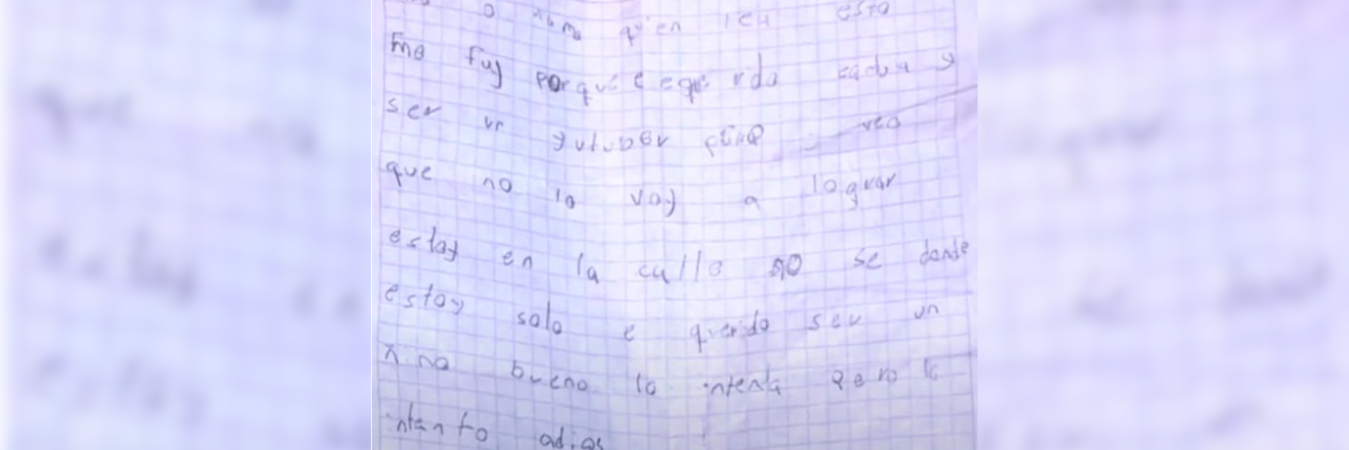 quien lea esto
me fuy porque e querido
ser un yutuber pero veo
que no lo voy a lograr
estoy en la calle no se donde
estoy solo e querido ser un
nino bueno lo intenta pero lo
intento adios